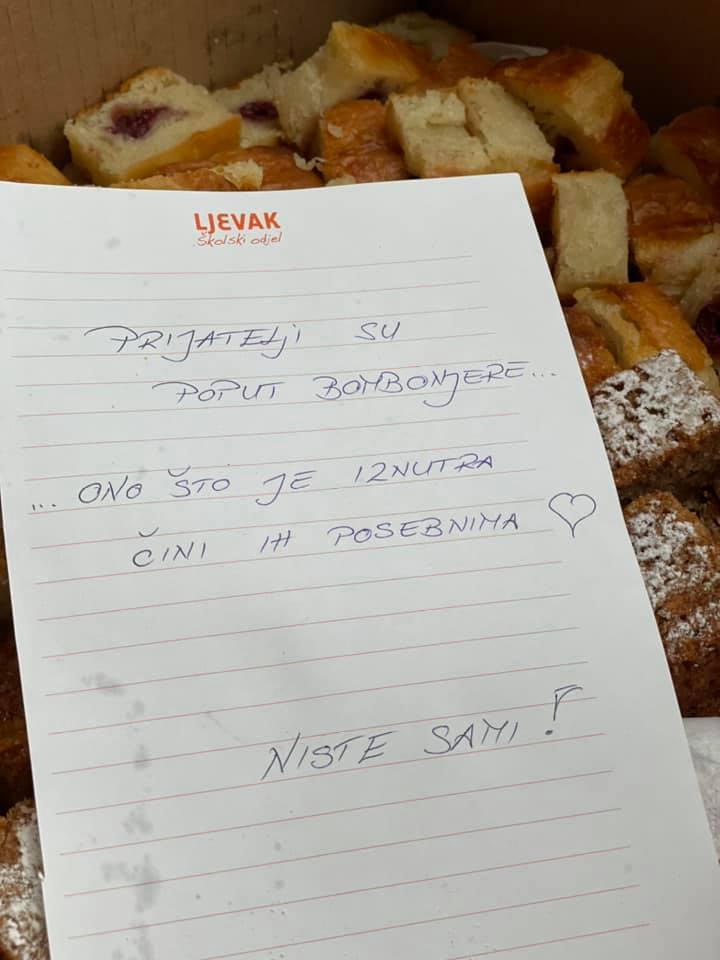 LJEVAK
Školski odjel
PRIJATELJI SU
POPUT BOMBONJERE...
... ONO ŠTO JE IZNUTRA
ČINI IH POSEBNIMA
NISTE SAMI!